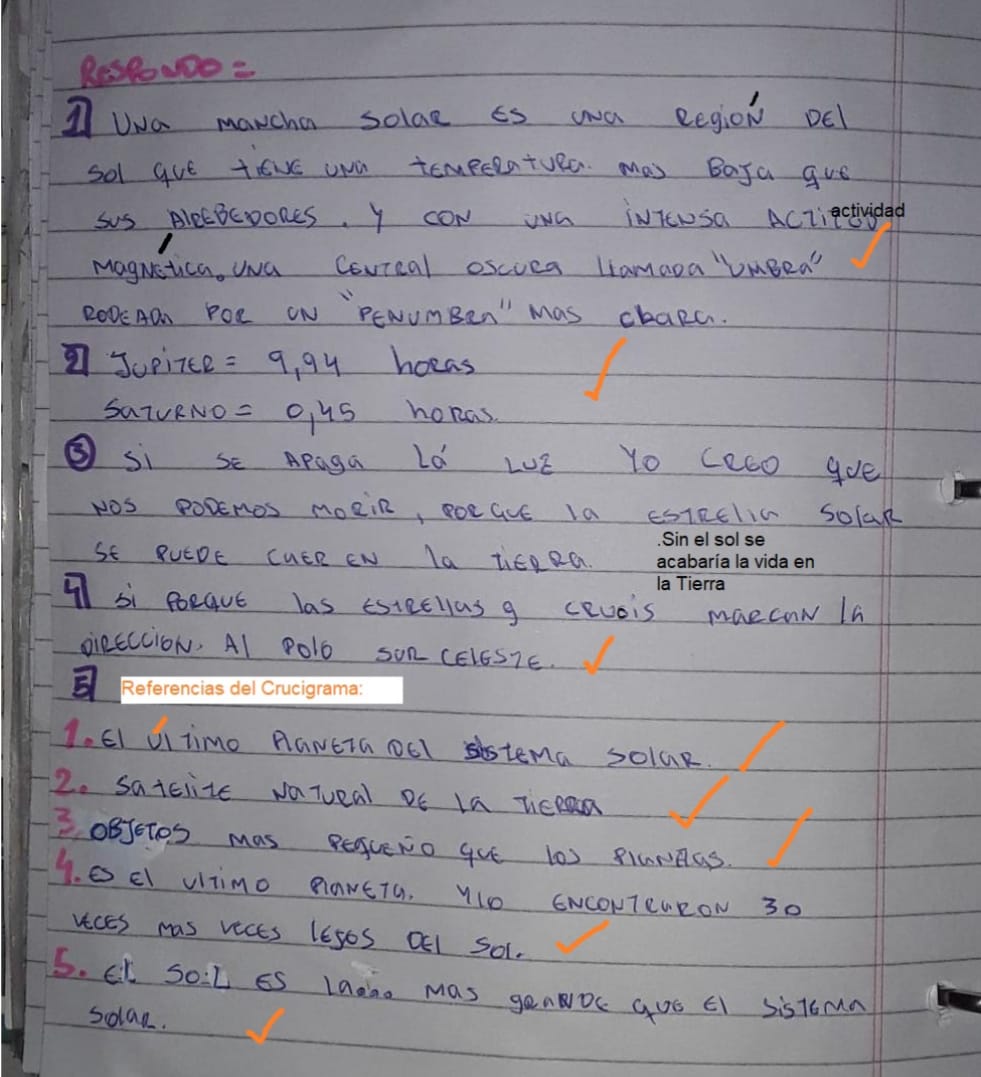 RESPONDO =
1] UNA MANCHA SOLAR ES UNA REGIÓN DEL
SOL QUE TIENE UNA TEMPERATURA. MAS BAJA QUE
SUS ALREBEDORES. Y CON UNA INTENSA actividad
MAGNÉTICA. UNA CENTRAL OSCURA LLAMADA "UMBRA"
RODEADA POR UN "PENUMBRA" MAS CLARA.
2] JUPITER = 9,94 HORAS
SATURNO = 0,45 HORAS.
3 SI SE APAGA LÁ LUZ YO CREO QUE
NOS PODEMOS MORIR, PORQUE LA ESTRELLA SOLAR
SE PUEDE CAER EN LA TIERRA.
.Sin el sol se
acabaría la vida en
la Tierra
4] SI PORQUE LAS ESTRELLAS Y CRUCIS MARCAN LA
DIRECCION. AL POLO SUR CELESTE.
5] Referencias del Crucigrama:
1. El ÚLTIMO PLANETA DEL SISTEMA SOLAR.
2. SATELITE NATURAL DE LA TIERRA
3 OBJETOS MAS PEQUEÑO QUE LOS PLANETAS.
4. ES EL ULTIMO PLANETA. Y LO ENCONTRARON 30
VECES MAS VECES LEJOS DEL SOL.
5. EL SOL ES MAS GRANDE QUE EL SISTEMA
SOLAR.